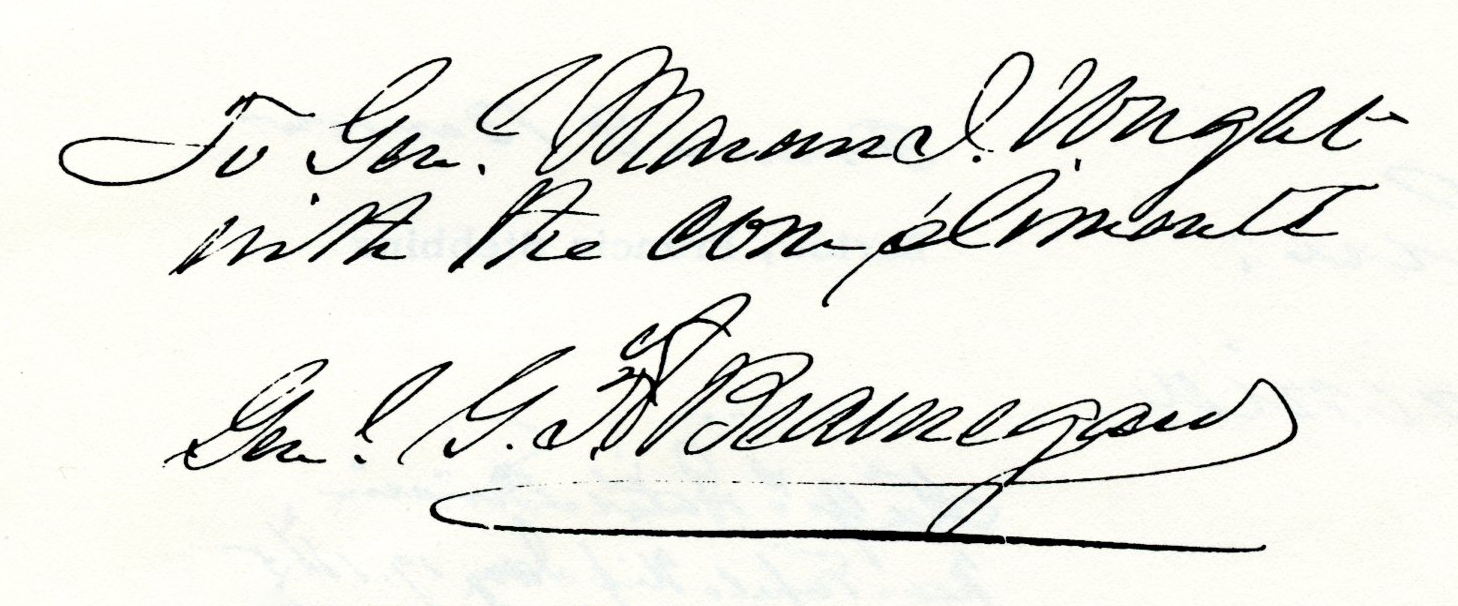 To Genl. Marcus J. Wright
with the compliments
Genl. G. T. Beauregard